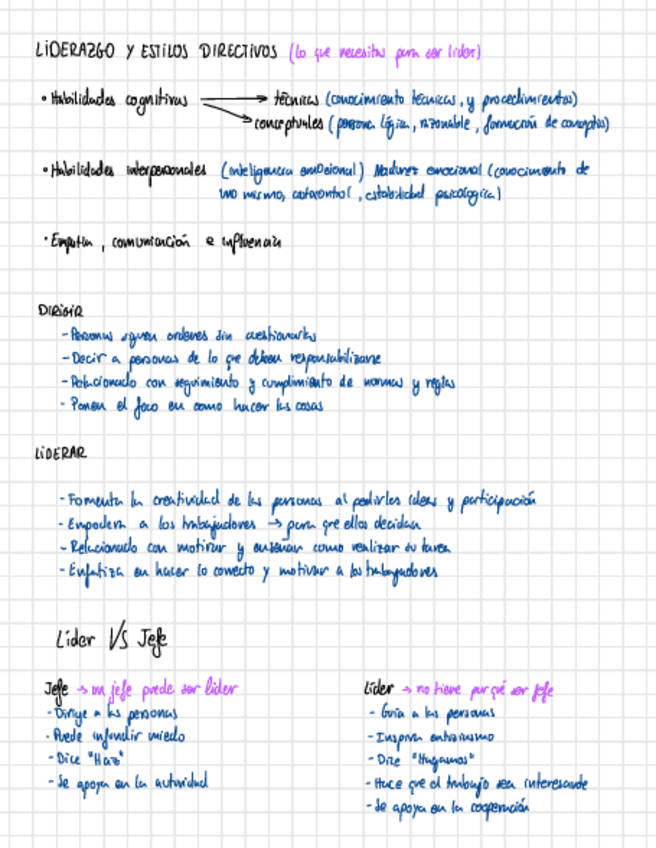 LIDERAZGO Y ESTILOS DIRECTIVOS (lo que necesitas para ser lider)
• Habilidades cognitivas → técnicas (conocimiento técnicas, y procedimientos)
→ conceptuales (persona lógica, razonable, formación de conceptos)
• Habilidades interpersonales (inteligencia emocional) Madurez emocional (conocimiento de
uno mismo, autocontrol, estabilidad psicológica)
• Empatía, comunicación e influencia
DIRIGIR
- Personas siguen ordenes sin cuestionarlas
- Decir a personas de lo que deben responsabilizarse
- Relacionado con seguimiento y cumplimiento de normas y reglas
- Ponen el foco en como hacer las cosas
LIDERAR
- Fomenta la creatividad de las personas al pedirles ideas y participación
- Empodera a los trabajadores → para que ellos decidan
- Relacionado con motivar y enseñar como realizar su tarea
- Enfatiza en hacer lo correcto y motivar a los trabajadores
Líder VS Jefe
Jefe → un jefe puede ser lider
- Dirige a las personas
- Puede infundir miedo
- Dice "Haz"
- Se apoya en la autoridad
Líder → no tiene por qué ser jefe
- Guía a las personas
- Inspira entusiasmo
- Dice "Hagamos"
- Hace que el trabajo sea interesante
- Se apoya en la cooperación